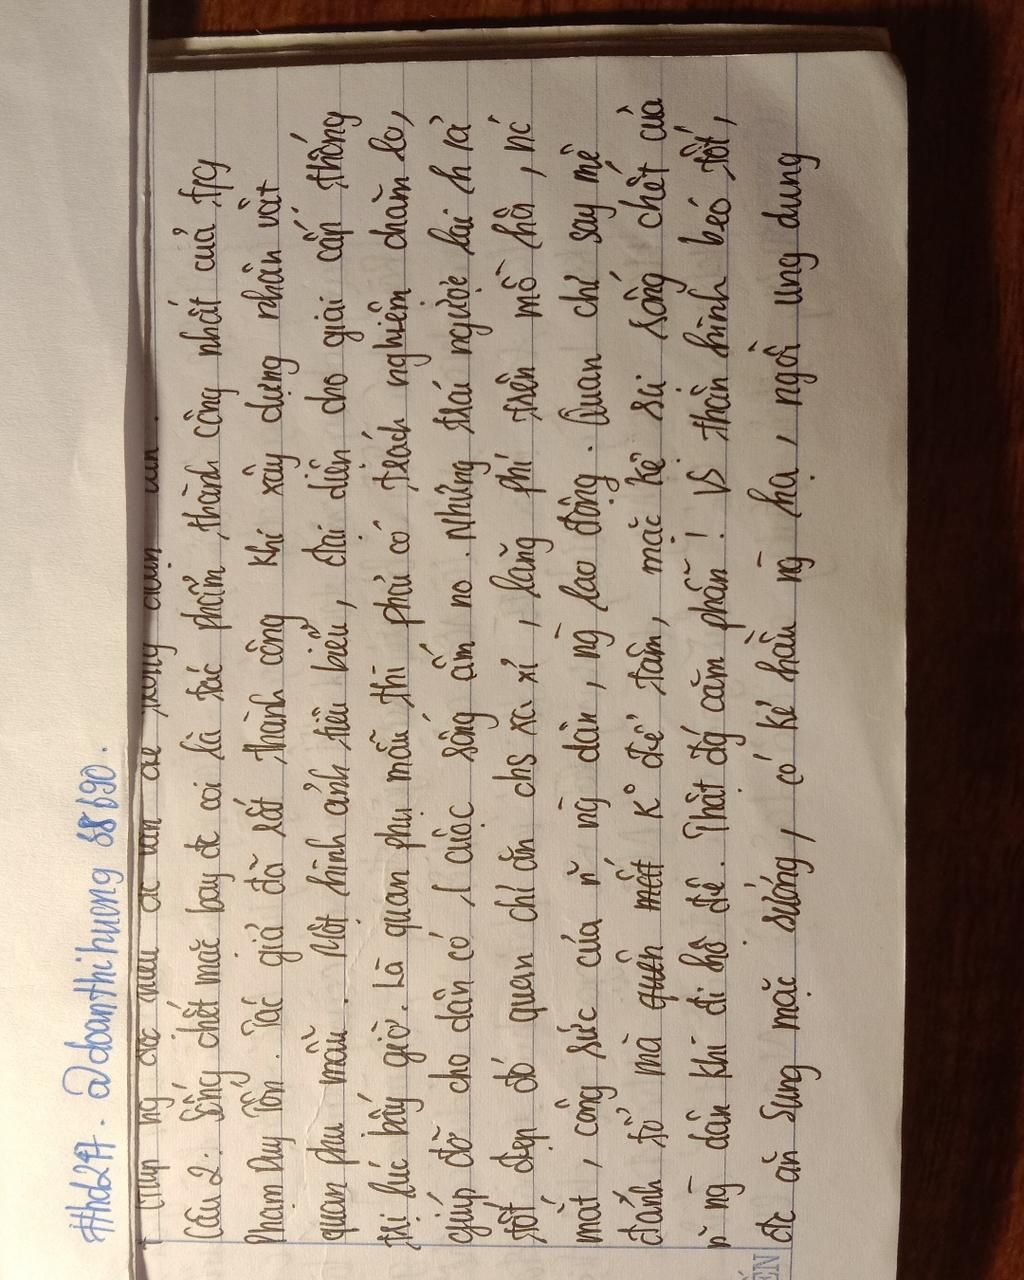 #hd247. @doanthihuong88690.
Câu 2: Sống chết mặc bay đc coi là tác phẩm thành công nhất của tg
Phạm Duy Tốn. Tác giả đã rất thành công khi xây dựng nhân vật
quan phụ mẫu. Một hình ảnh tiêu biểu, đại diện cho giai cấp thống
trị lúc bấy giờ. Là quan phụ mẫu thì phải có trách nghiệm chăm lo,
giúp đỡ cho dân có 1 cuộc sống ấm no. Nhưng trái ngược lại h là
tốt đẹp đó quan chỉ ăn chs xa xỉ, lãng phí trên mồ hôi, nc
mắt, công sức của n~ ng dân, ng lao động. Quan chỉ say mê
đánh tổ mà quên mất k° đê' tâm, mặc kệ sự sống chết của
n~ ng dân khi đi hộ đê. Thật đg căm phẫn! Vs thân hình béo tốt,
đc ăn sung mặc sướng, có kẻ hầu ng hạ, ngồi ung dung
ỀN